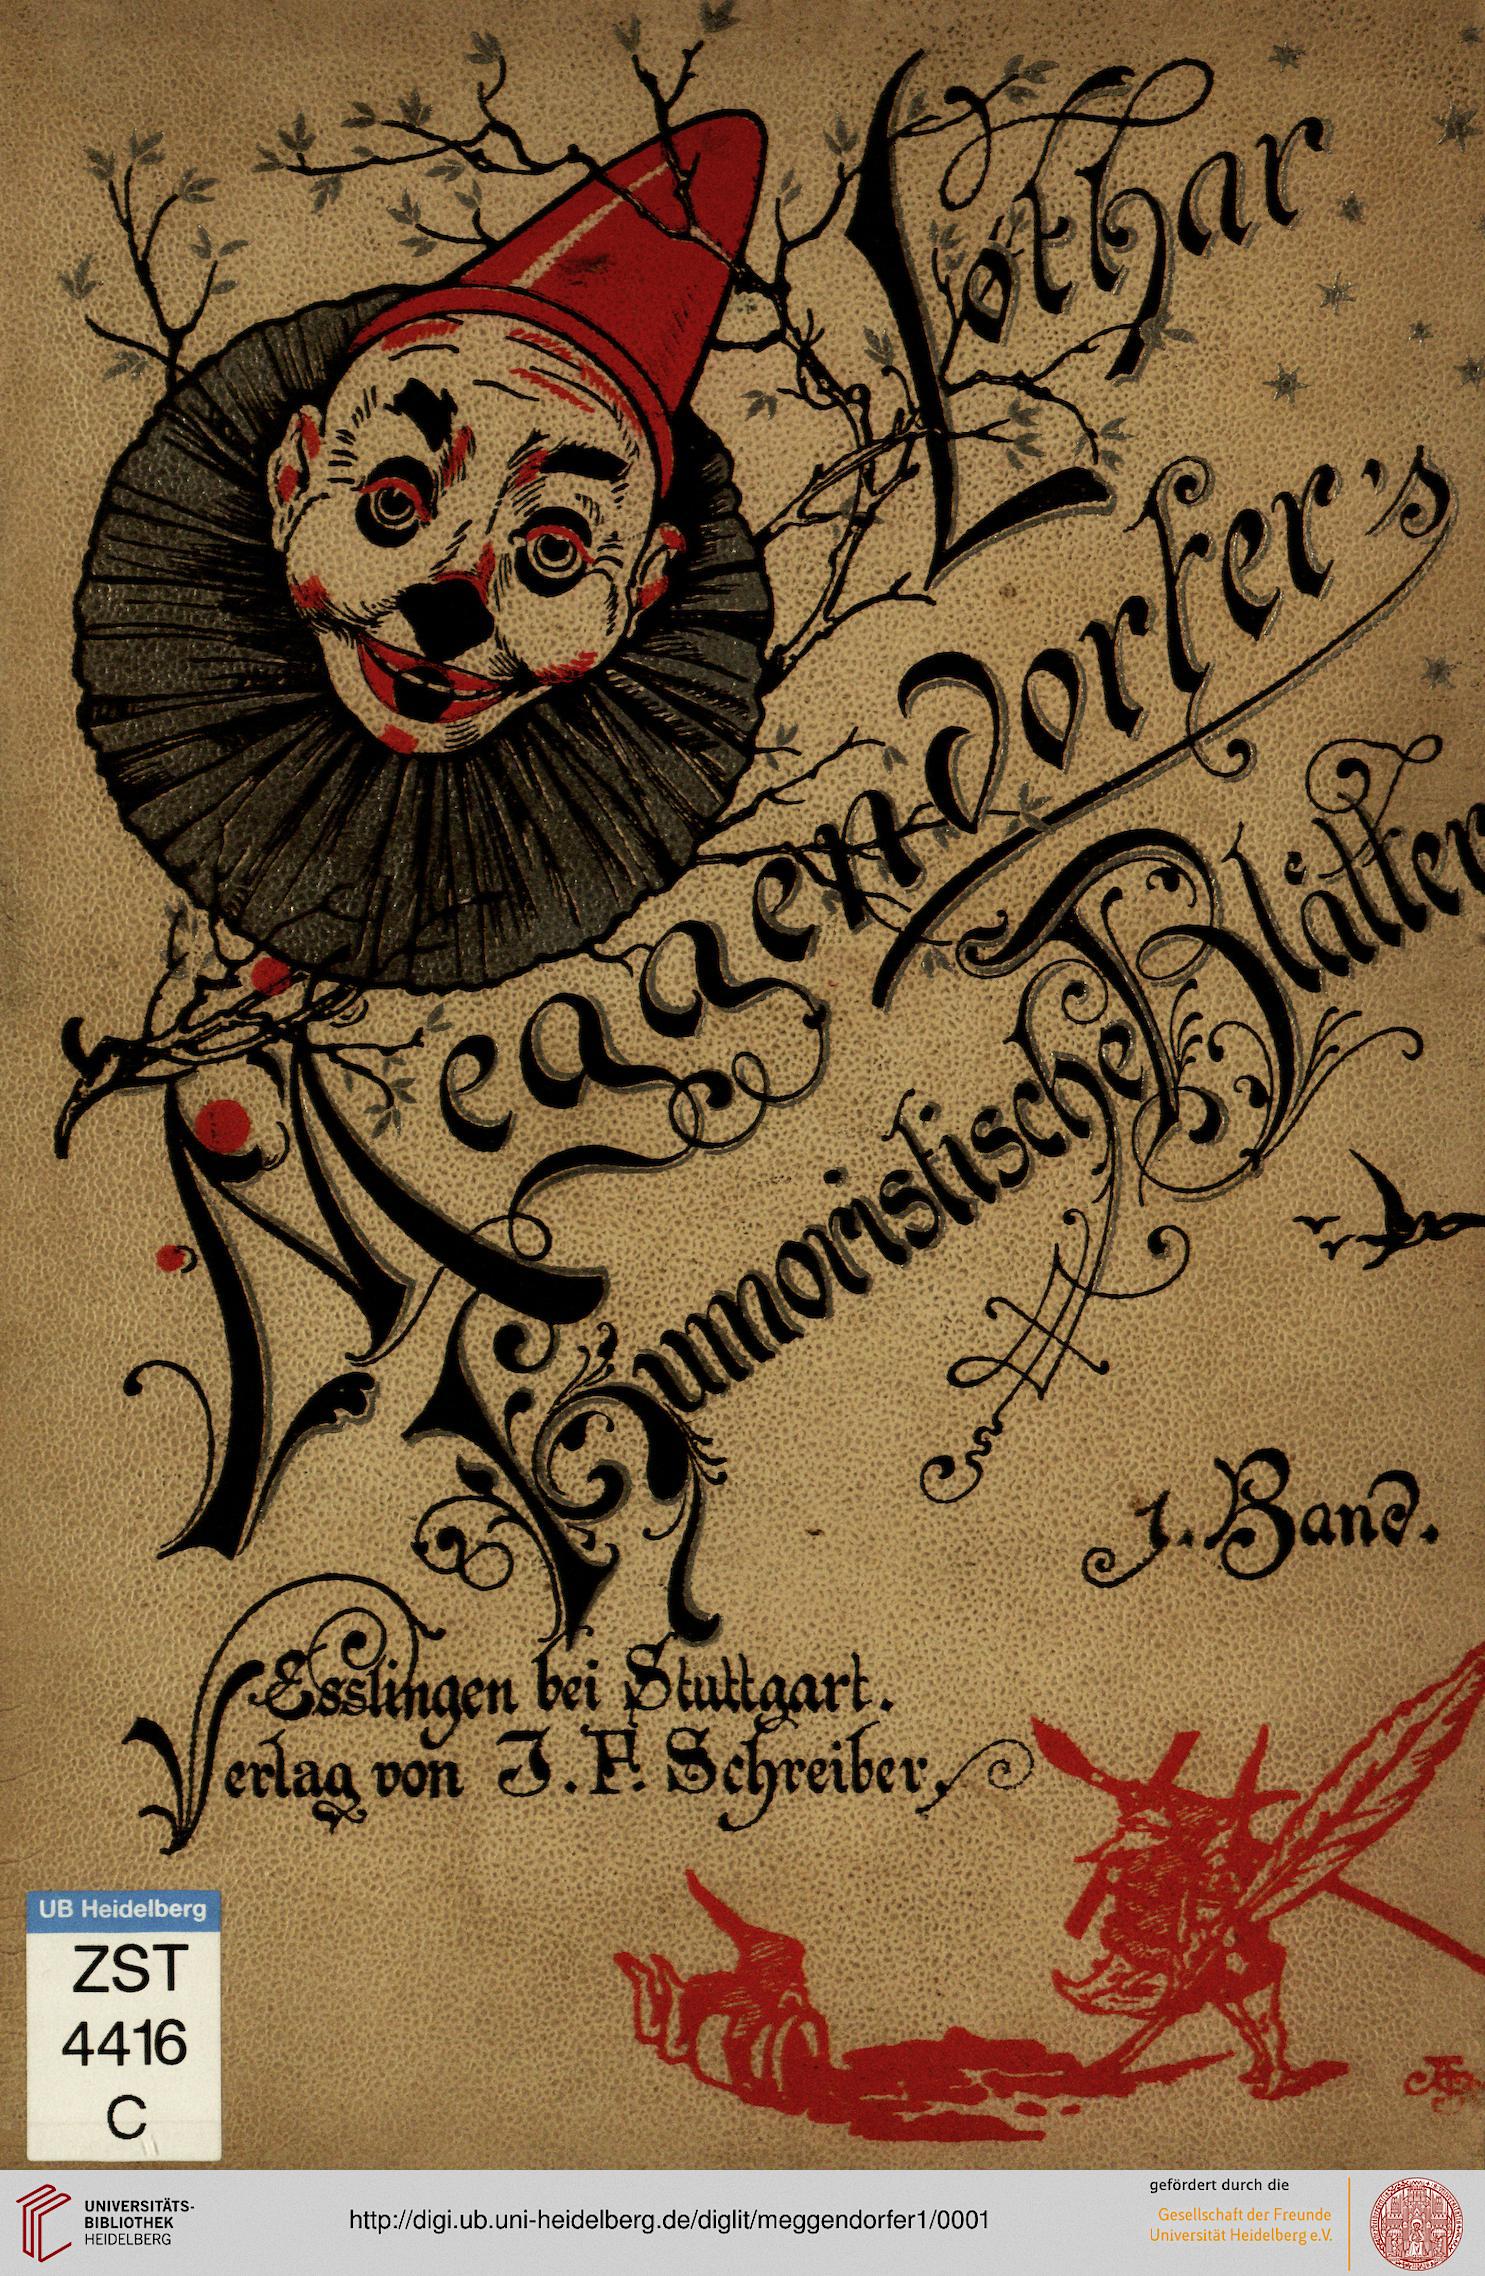 Lothar
Meggendorfer's
Humoristische Blätter
1. Band.
Esslingen bei Stuttgart.
Verlag von J. F. Schreiber.
UB Heidelberg
ZST
4416
C
UNIVERSITÄTS-
BIBLIOTHEK
HEIDELBERG
http://digi.ub.uni-heidelberg.de/diglit/meggendorfer1/0001
gefördert durch die
Gesellschaft der Freunde
Universität Heidelberg e.V.